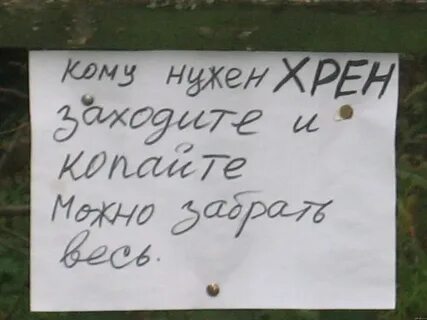 кому нужен ХРЕН
заходите и
копайте
Можно забрать
весь.